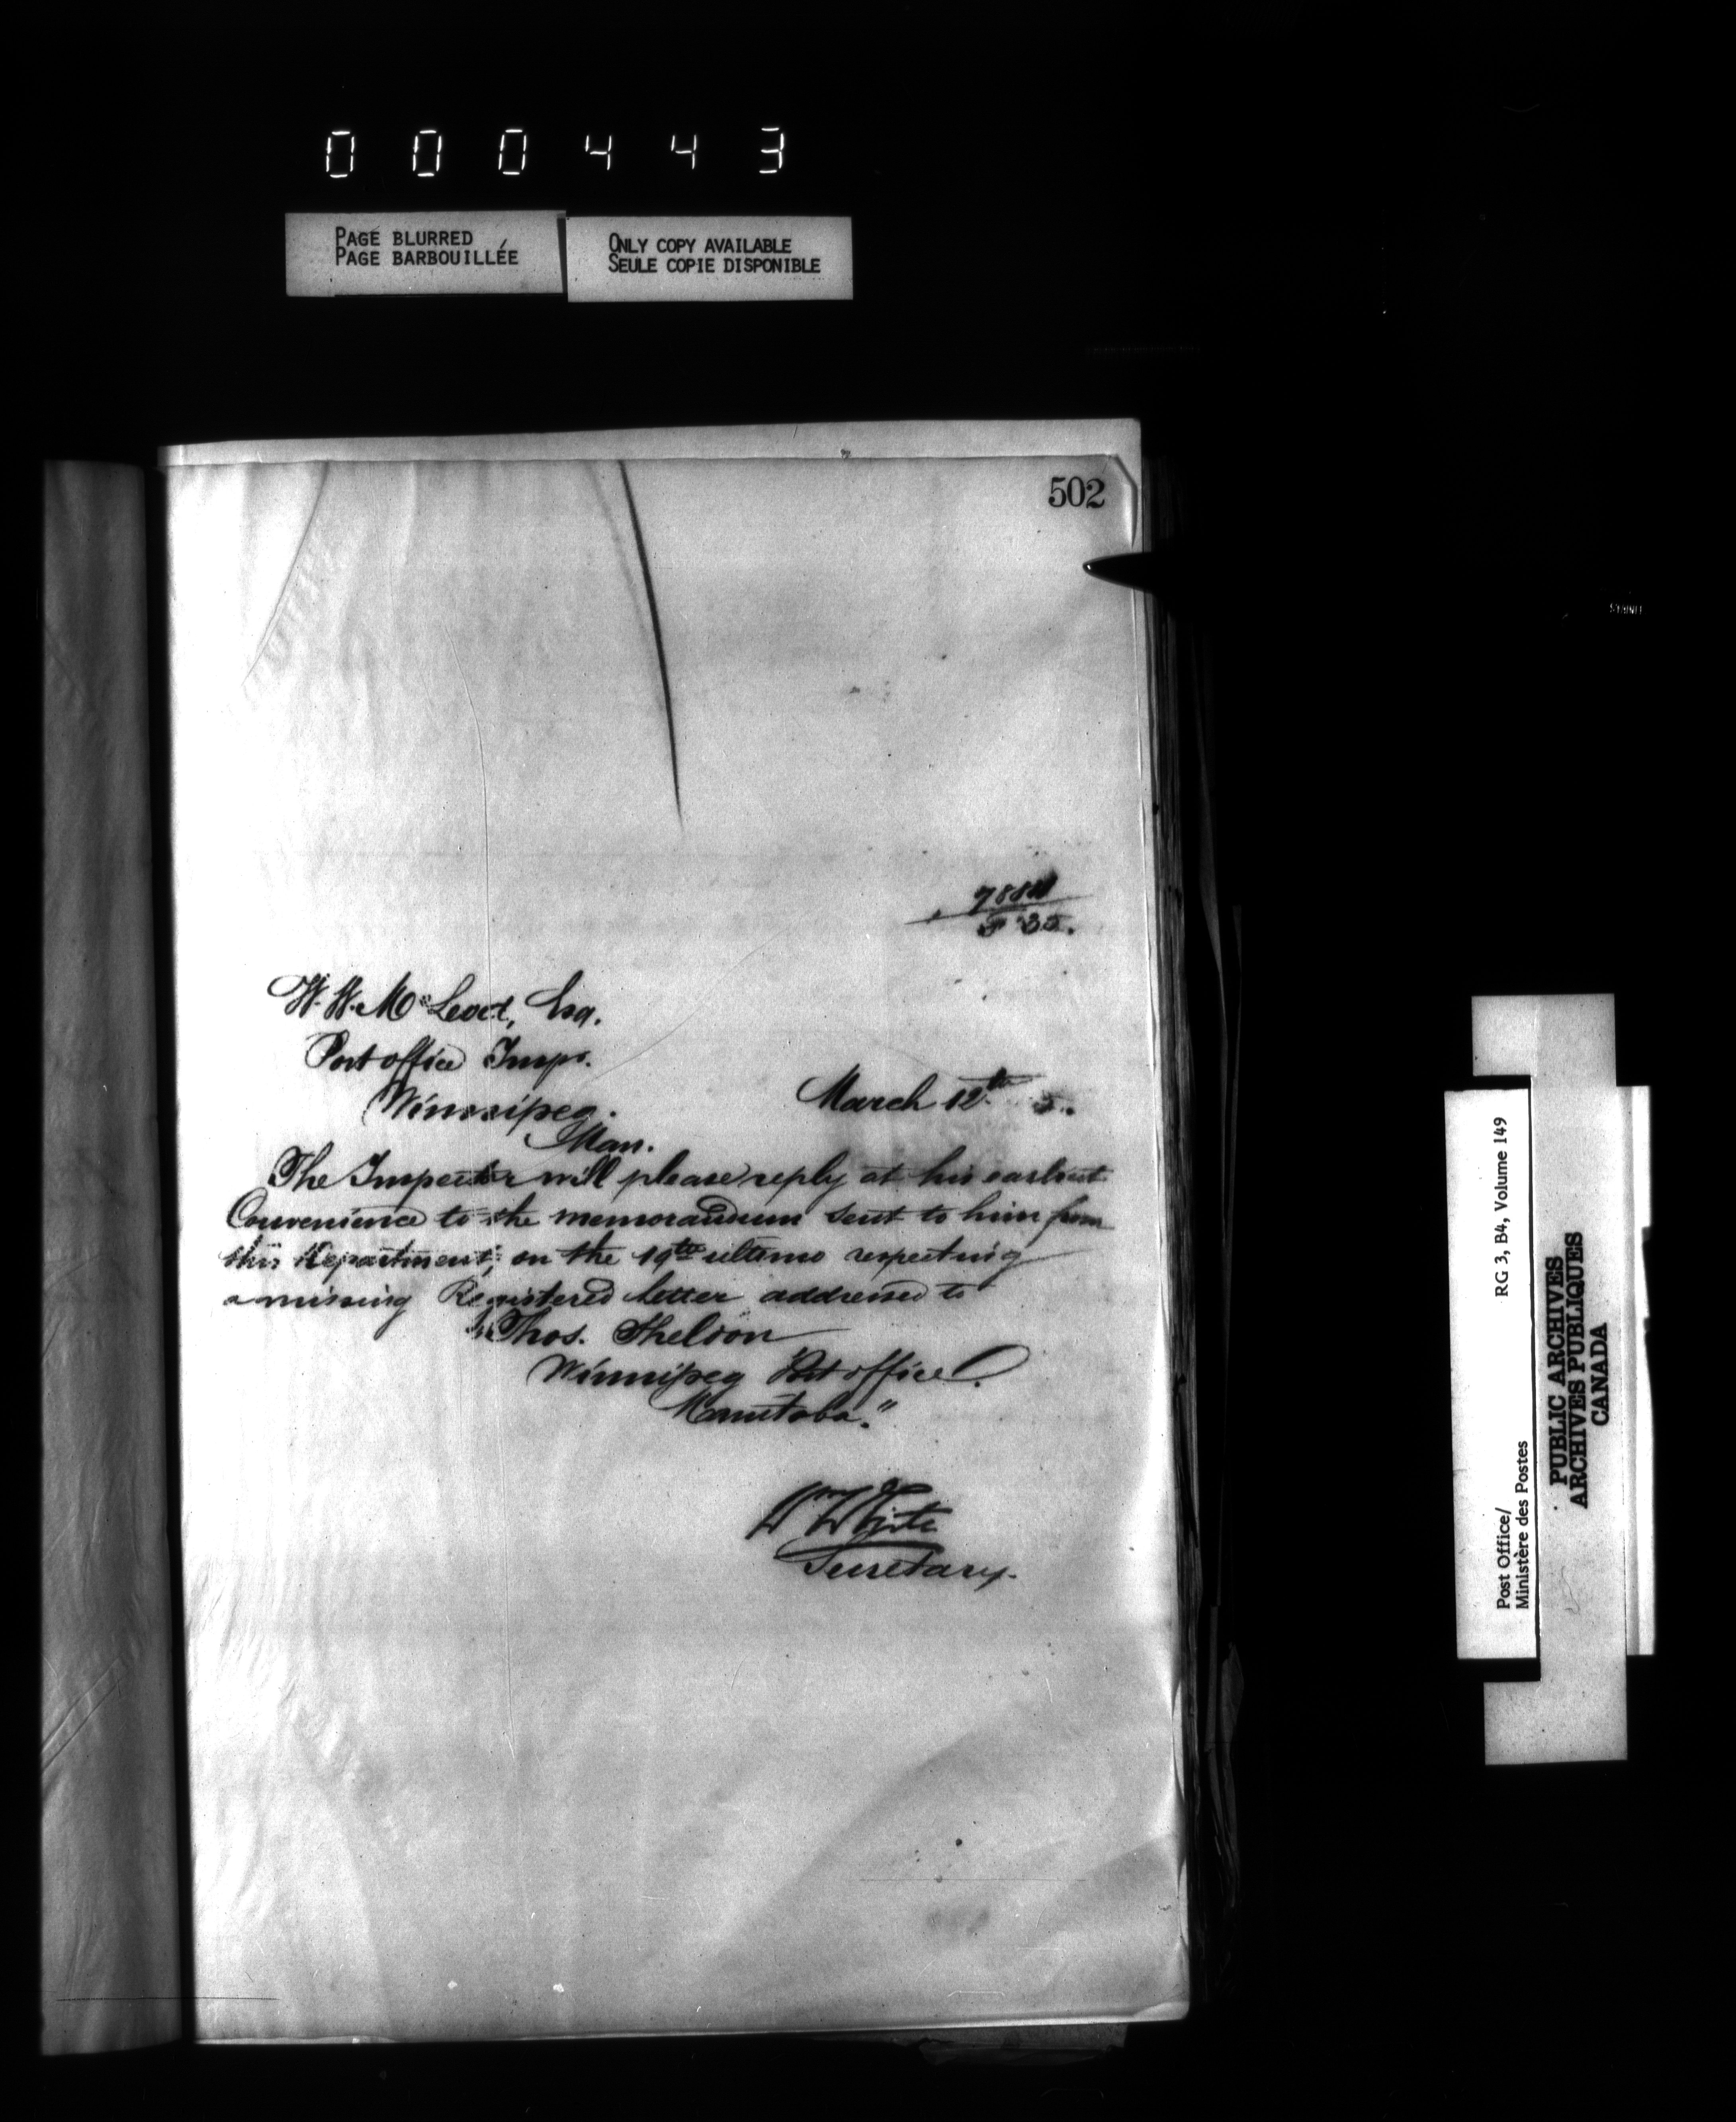 000443
PAGE BLURRED
PAGE BARBOUILLÉE
ONLY COPY AVAILABLE
SEULE COPIE DISPONIBLE
502
F 35.
W. W. McLeod, Esq.
Post office Inspr.
Winnipeg.
Man.
March 12th 5.
The Inspector will please reply at his earliest
Convenience to the memorandum sent to him from
this Department, on the 19th ultimo respecting
a missing Registered letter addressed to
Thos. Sheldon
Winnipeg Post office.
Manitoba."
W White
Secretary.
RG 3, B4, Volume 149
Post Office/
Ministère des Postes
PUBLIC ARCHIVES
ARCHIVES PUBLIQUES
CANADA